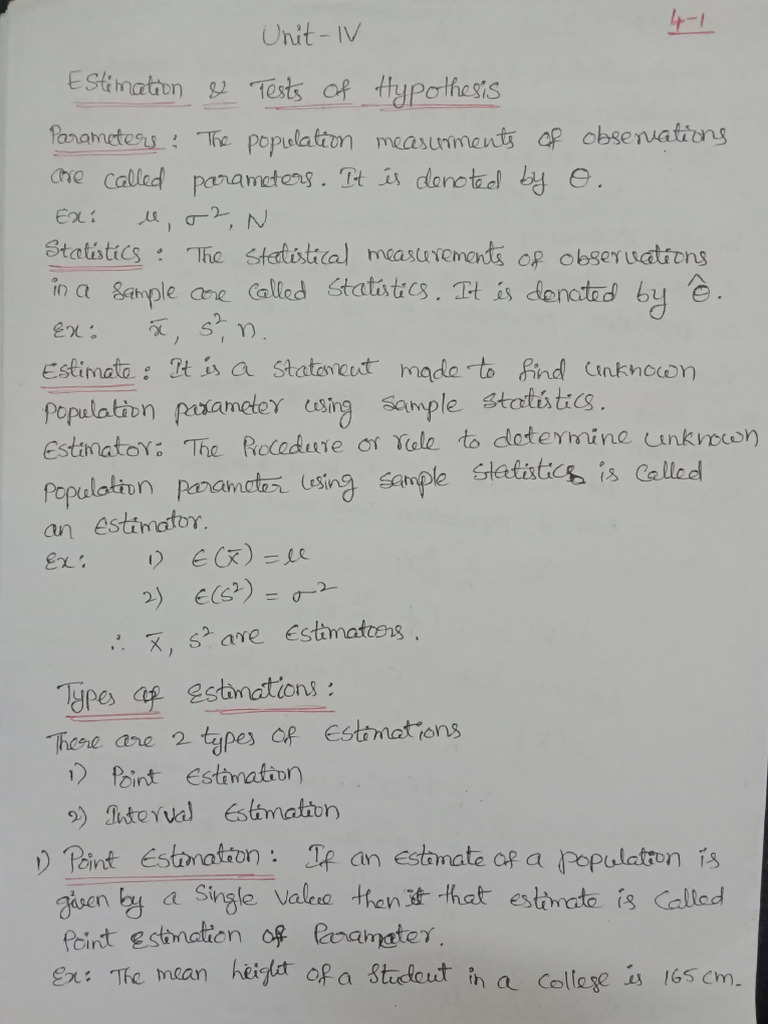 4-1
Unit-IV
Estimation & Tests of Hypothesis
Parameters : The population measurments of observations
are called parameters. It is denoted by θ.
Ex: μ, σ², N
Statistics : The statistical measurements of observations
in a sample are called Statistics. It is denoted by θ̂.
Ex: x̄, s², n.
Estimate : It is a statement made to find unknown
population parameter using sample statistics.
Estimator: The Procedure or rule to determine unknown
population parameter using sample statistics is called
an estimator.
Ex: 1) E(x̄) = μ
2) E(s²) = σ²
∴ x̄, s² are Estimatoors.
Types of Estimations :
There are 2 types of Estimations
1) Point Estimation
2) Interval Estimation
1) Point Estimation : If an estimate of a population is
given by a single value then it that estimate is called
Point Estimation of Parameter.
Ex: The mean height of a student in a college is 165 cm.